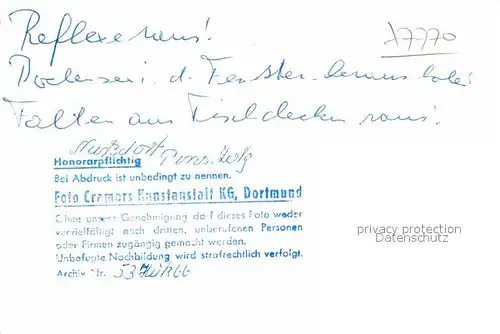 Reflexe raus!
17770
d. Fenster
Falten aus Tischdecken raus!
Nußdorf
Honorarpflichtig Pens.
Bei Abdruck ist unbedingt zu nennen.
Foto Cramers Kunstanstalt KG, Dortmund
Ohne unsere Genehmigung darf dieses Foto weder
vervielfältigt noch dritten, unberufenen Personen
oder Firmen zugängig gemacht werden.
Unbefugte Nachbildung wird strafrechtlich verfolgt.
Archiv Nr. 53
privacy protection
Datenschutz